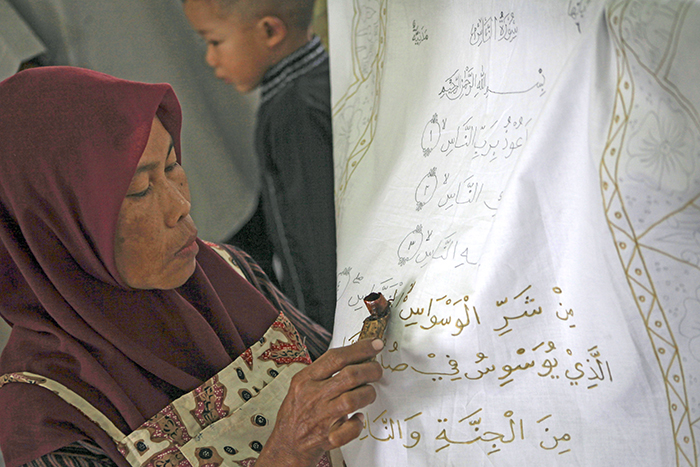 سُوْرَةُ النَّاسِ
بِسْمِ اللهِ الرَّحْمٰنِ الرَّحِيْمِ
اَعُوْذُ بِرَبِّ النَّاسِۙ ١
النَّاسِۙ ٢
ـهِ النَّاسِۙ ٣
مِنْ شَرِّ الْوَسْوَاسِ
الَّذِيْ يُوَسْوِسُ فِيْ
مِنَ الْجِنَّةِ وَالنَّاسِ